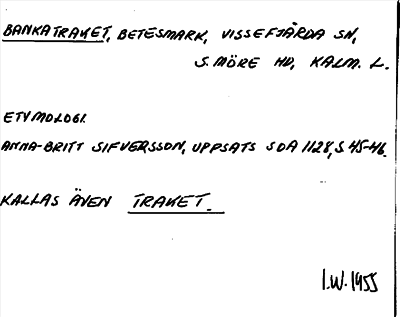 BANKATRAKET, BETESMARK, VISSEFJÄRDA SN,
S. MÖRE HD, KALM. L.
ETYMOLOGI.
ANNA-BRITT SIFVERSSON, UPPSATS SOA 1128, S 45-46.
KALLAS ÄVEN TRAKET.
I.W. 1955